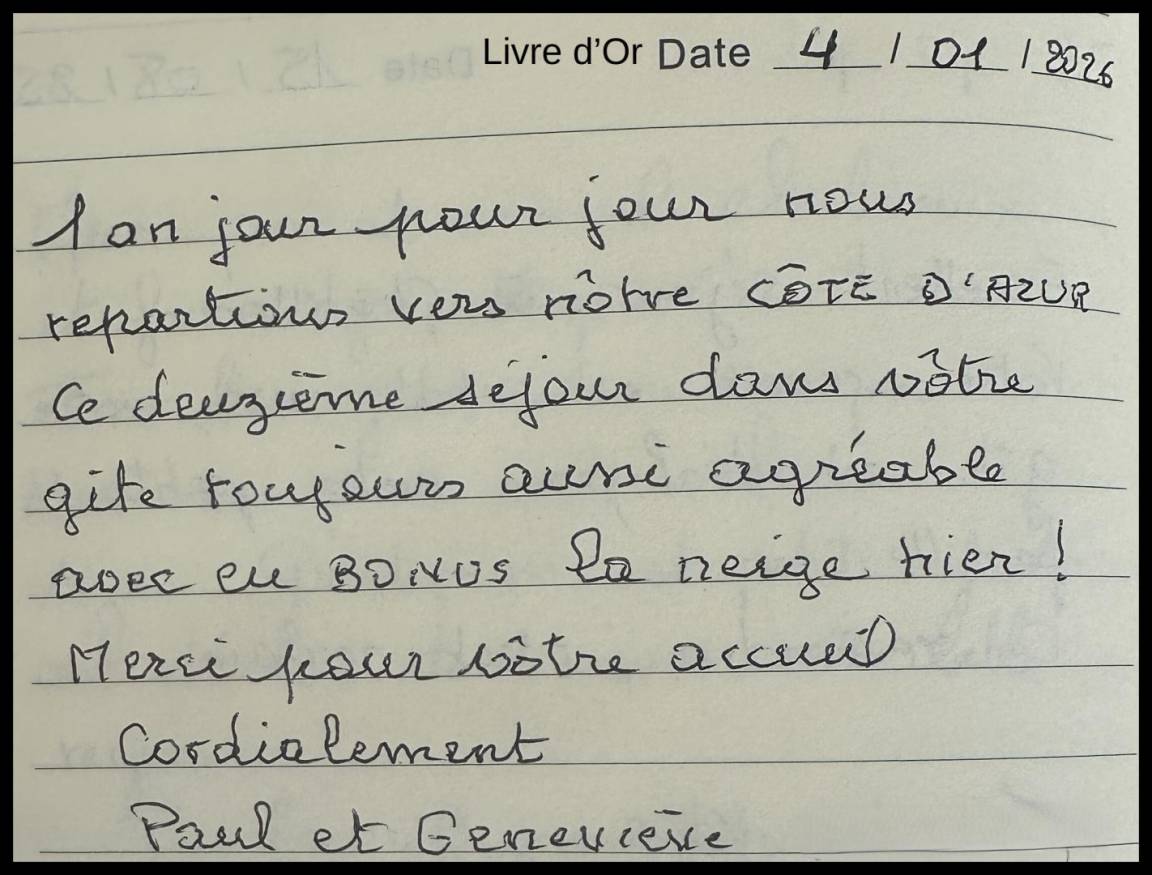 Livre d’Or Date 4 / 01 / 2026
1 an jour pour jour nous
repartions vers nôtre CÔTE D'AZUR
Ce deuzième séjour dans vôtre
gite toujours aussi agréable
avec en BONUS la neige hier !
Merci pour vôtre accueil
Cordialement
Paul et Geneviève